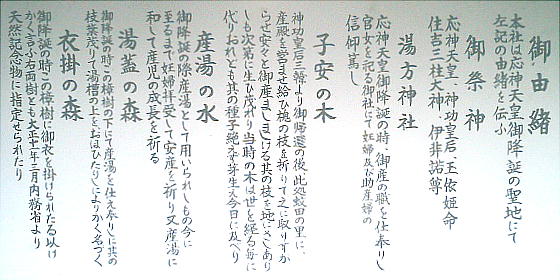 御由緒
本社は応神天皇御降誕の聖地にて
左記の由緒を伝ふ
御祭神
応神天皇、神功皇后、玉依姫命
住吉三柱大神、伊非諾尊
湯方神社
応神天皇御降誕の時、御産の職を仕奉りし
官女を祀る御社にて妊婦及び助産婦の
信仰篤し
子安の木
神功皇后三韓より御帰還の後、此処蚊田の里に、
産殿を営ませ給ひ槐の枝を折りて之に取りすか
らせ安々と御産ましましける其の枝を地にさしあり
しも次第に生ひ茂れり当時の木は世を経る毎に
代りおれとも其の種子絶えず芽生え今日に及べり
産湯の水
御降誕の際産湯として用いられしもの今に
至るまで妊婦拝受して安産を祈り又産湯に
和して産児の成長を祈る
湯蓋の森
御降誕の時この樟樹の下にて産湯を仕え奉りしに其の
枝葉茂りて湯槽の上をおほひたりしによりかく名づく
衣掛の森
御降誕の時この樟樹に御衣を掛けられたる以て
かく言ふ右両樹とも大正十一年三月内務省より
天然記念物に指定せられたり